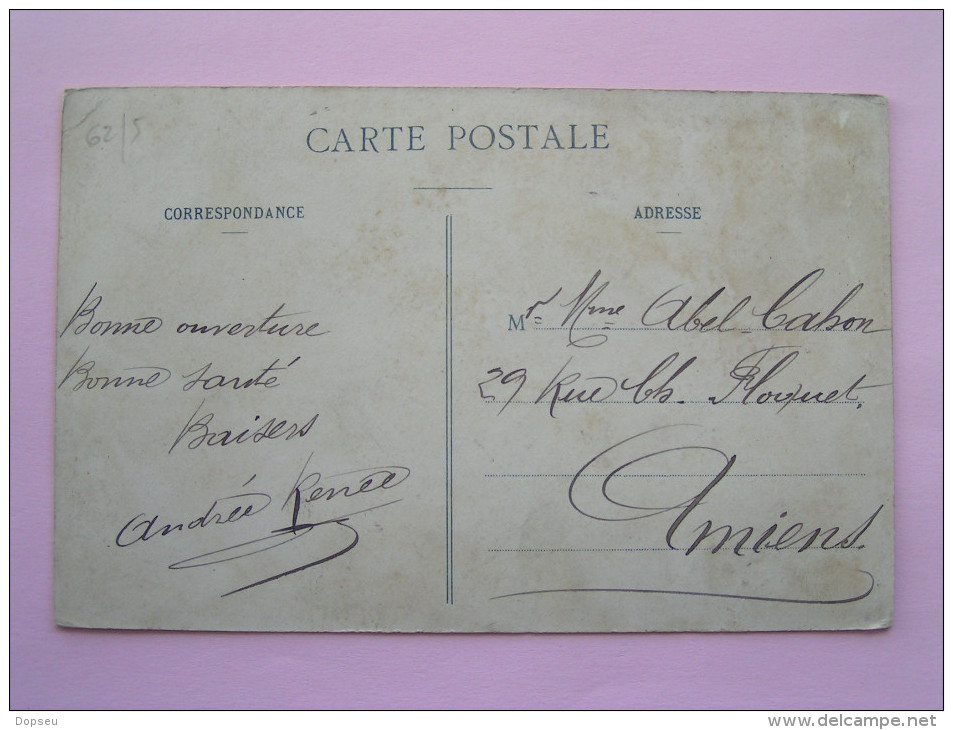 62/5
CARTE POSTALE
CORRESPONDANCE
Bonne ouverture
Bonne santé
Baisers
Andrée Renée
ADRESSE
Mr Mme Abel Cahon
29 Rue Ch. Floquet,
Amiens.
Dopseu
www.delcampe.net